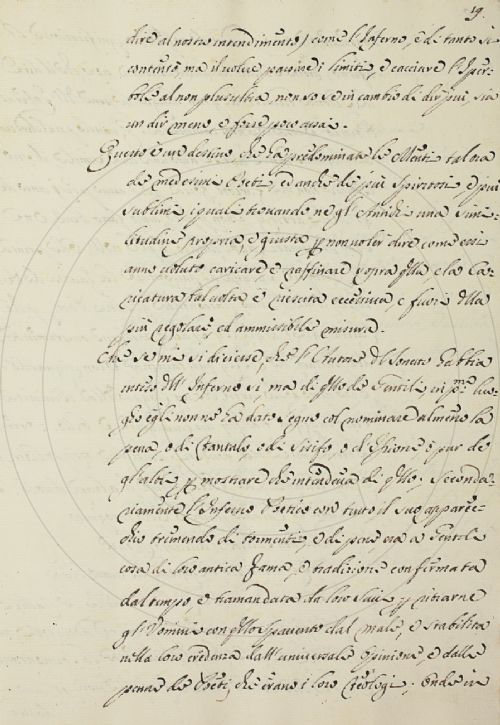 19.
dire al nostro intendimento) come l'Inferno, è di tanto si
contento, ma il voler passare i limiti, e cacciare l'Iper-
bole al non plus ultra, non so se in cambio di dir più, sia
un dir meno, e forse poco assai.
Questo è un destino, che ha predominate le Menti talora
de medesimi Poeti, ed anche de più spiritosi, e più
sublimi, i quali trovando negl'Antichi una simi-
litudine propria, e giusta p non voler dire come essi
anno voluto caricare, e raffinare sopra qlla, e la Ca-
ricatura talvolta è riescita eccessiva, e fuori dlla
più regolare, ed ammissibile misura.
Che se mi si dicesse, che l'Autore dl Sonetto habbia
inteso dll'Inferno sì, ma di qllo de Gentili in pmo luo-
go egli non ne ha dato segno col nominare almeno la
pena, o di Tantalo, o di Sisifo, o d'Issione, e par de
gl'altri p mostrare che intendeva di qllo; seconda-
riamente l'Inferno Poetico con tutto il suo apparec-
chio tremendo di tormenti, e di pene, era a Gentili
cosa di loro antica Fama, e tradizione confirmata
dal tempo, e tramandata da loro savi p ritrarne
gl'Uomini con qllo spavento dal male, e stabilita
nella loro credenza dall'universale Opinione, e dalle
penne de Poeti, che erano i loro Teologi; onde in